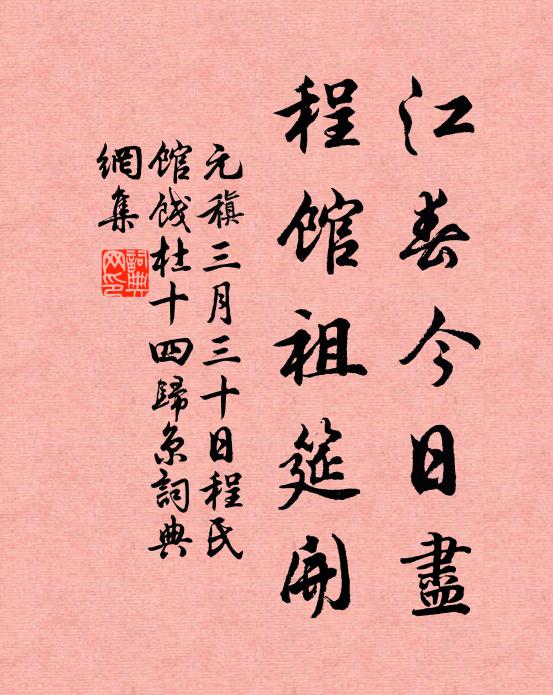 江春今日盡
程館祖筵開
元稹三月三十日程氏
館餞杜十四歸京詞典
網集
詞典
网印